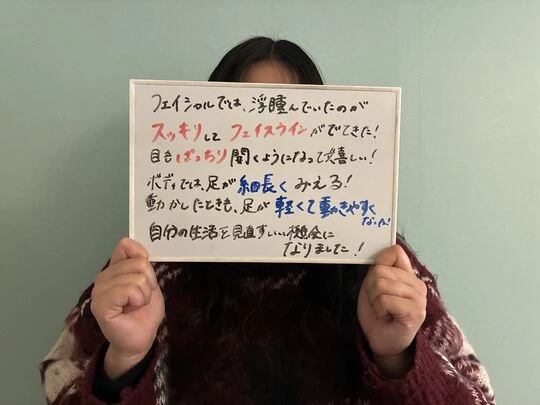 フェイシャルでは、浮腫んでいたのが
スッキリして フェイスラインがでてきた!
目もぱっちり 開くようになって嬉しい!
ボディでは、足が 細長く みえる!
動かしたときも、足が 軽くて動きやすく
なった!
自分の生活を見直すいい機会に
なりました!